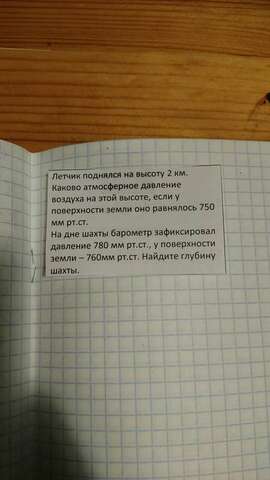 Летчик поднялся на высоту 2 км.
Каково атмосферное давление
воздуха на этой высоте, если у
поверхности земли оно равнялось 750
мм рт.ст.
На дне шахты барометр зафиксировал
давление 780 мм рт.ст., у поверхности
земли – 760мм рт.ст. Найдите глубину
шахты.